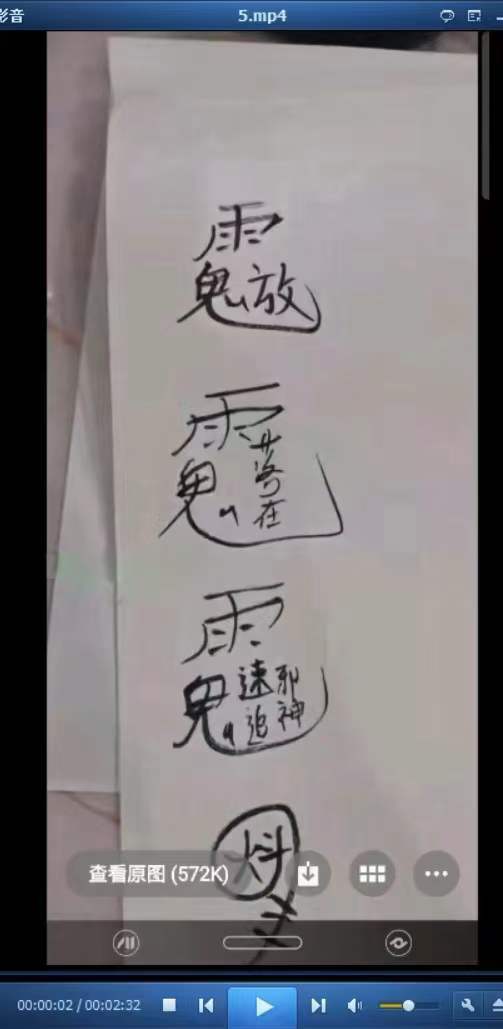 影音
5.mp4
雨
鬼放
雨
鬼落在
雨
鬼速追邪神
查看原图 (572K)
00:00:02 / 00:02:32